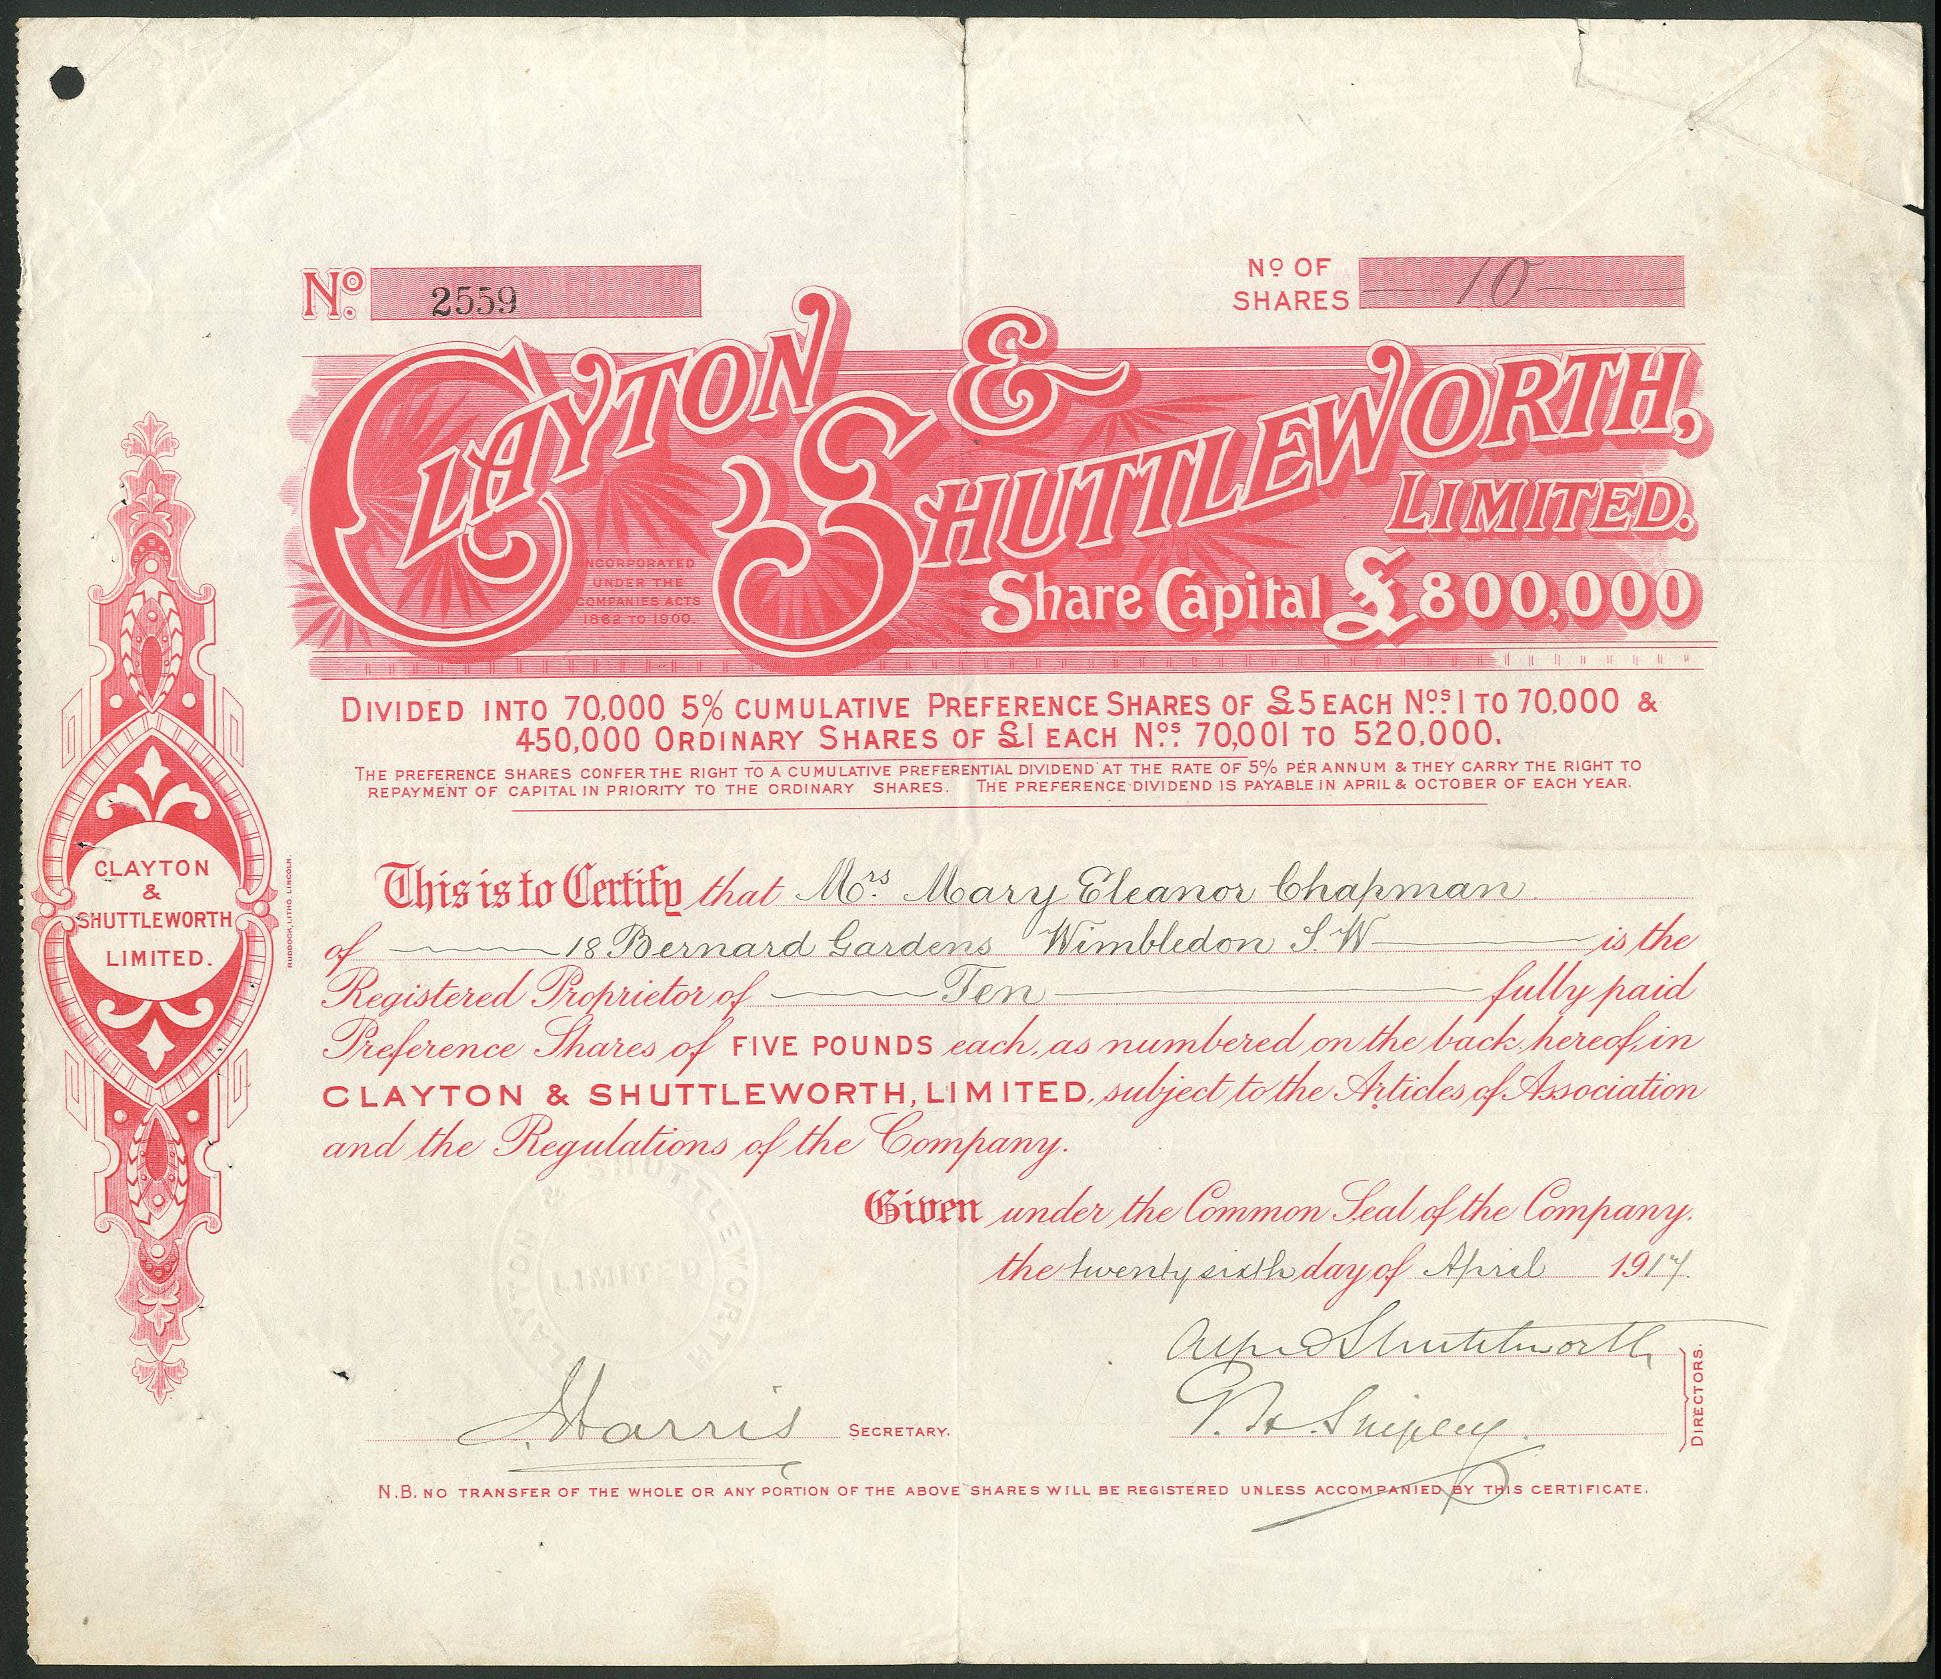 No. 2559
No OF SHARES 10
CLAYTON & SHUTTLEWORTH,
LIMITED.
INCORPORATED
UNDER THE
COMPANIES ACTS
1862 TO 1900.
Share Capital £800,000
DIVIDED INTO 70,000 5% CUMULATIVE PREFERENCE SHARES OF £5 EACH Nos. 1 TO 70,000 &
450,000 ORDINARY SHARES OF £1 EACH Nos. 70,001 TO 520,000.
THE PREFERENCE SHARES CONFER THE RIGHT TO A CUMULATIVE PREFERENTIAL DIVIDEND AT THE RATE OF 5% PER ANNUM & THEY CARRY THE RIGHT TO
REPAYMENT OF CAPITAL IN PRIORITY TO THE ORDINARY SHARES. THE PREFERENCE DIVIDEND IS PAYABLE IN APRIL & OCTOBER OF EACH YEAR.
CLAYTON
&
SHUTTLEWORTH
LIMITED.
RUDDOCK, LITHO. LINCOLN.
This is to Certify that Mrs. Mary Eleanor Chapman
of 18 Bernard Gardens Wimbledon S.W is the
Registered Proprietor of Ten fully paid
Preference Shares of FIVE POUNDS each, as numbered on the back hereof, in
CLAYTON & SHUTTLEWORTH, LIMITED, subject to the Articles of Association
and the Regulations of the Company.
Given under the Common Seal of the Company.
the twenty sixth day of April 1917.
CLAYTON & SHUTTLEWORTH
LIMITED
Alfred Shuttleworth
DIRECTORS.
Harris SECRETARY.
N.B. NO TRANSFER OF THE WHOLE OR ANY PORTION OF THE ABOVE SHARES WILL BE REGISTERED UNLESS ACCOMPANIED BY THIS CERTIFICATE.